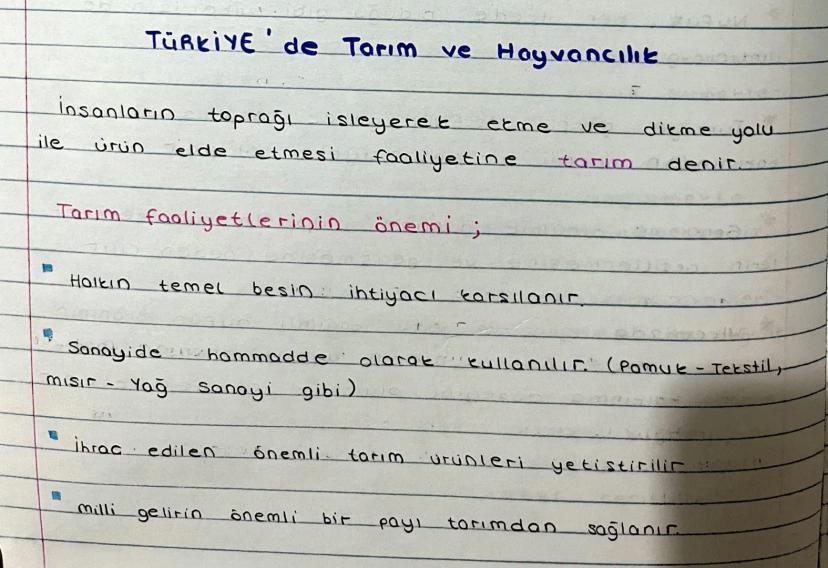 TÜRKİYE'de Tarım ve Hayvancılık
İnsanların toprağı işleyerek ekme ve dikme yolu
ile ürün elde etmesi faaliyetine tarım denir.
Tarım faaliyetlerinin önemi;
Halkın temel besin ihtiyacı karşılanır.
Sanayide hammadde olarak kullanılır. (Pamuk - Tekstil,
mısır - Yağ sanayi gibi)
İhraç edilen önemli tarım ürünleri yetiştirilir
milli gelirin önemli bir payı tarımdan sağlanır.